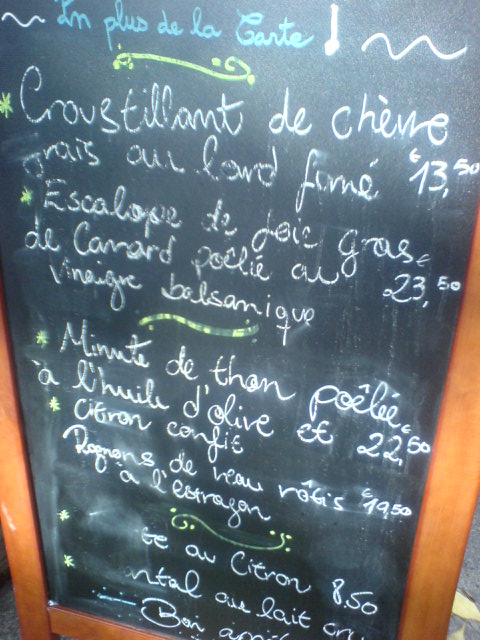 En plus de la Carte !
Croustillant de chèvre
frais au lard fumé €13,50
Escalope de foie gras
de Canard poêlé au €23,50
vinaigre balsamique
Minute de thon poêlée
à l'huile d'olive et €22,50
citron confit
Rognons de veau rôtis €19,50
à l'estragon
te au Citron 8,50
antal au lait
Bon